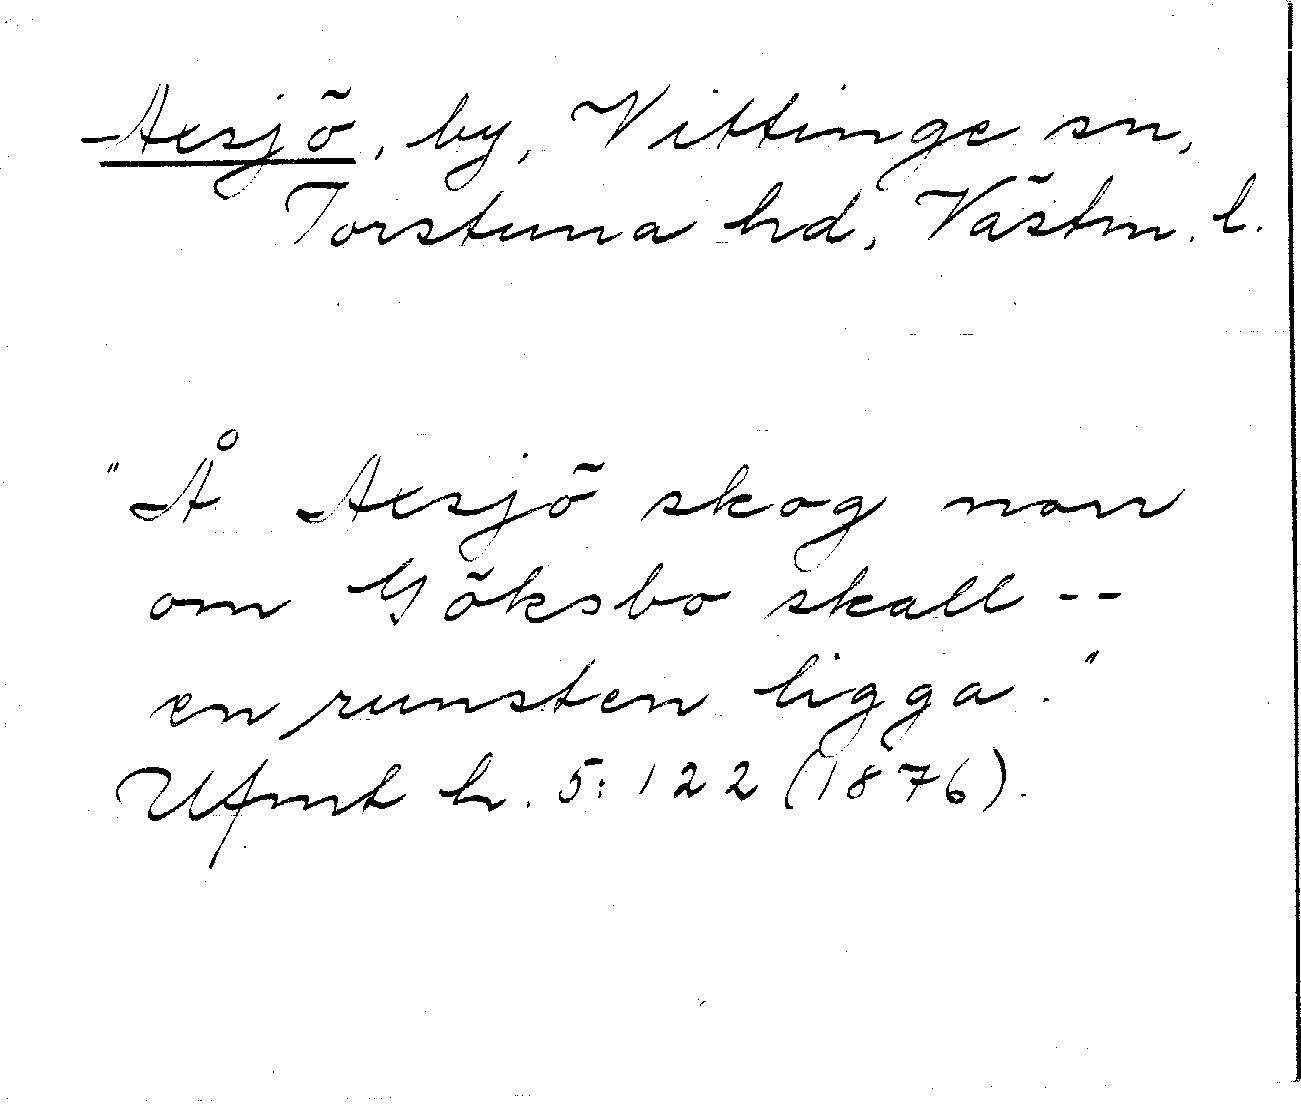 Axsjö, by, Vittinge sn,
Torstuna hd, Västm. l.
"Å Axsjö skog norr
om Göksbo skall --
en runsten ligga."
Ufmt h. 5: 122 (1876).